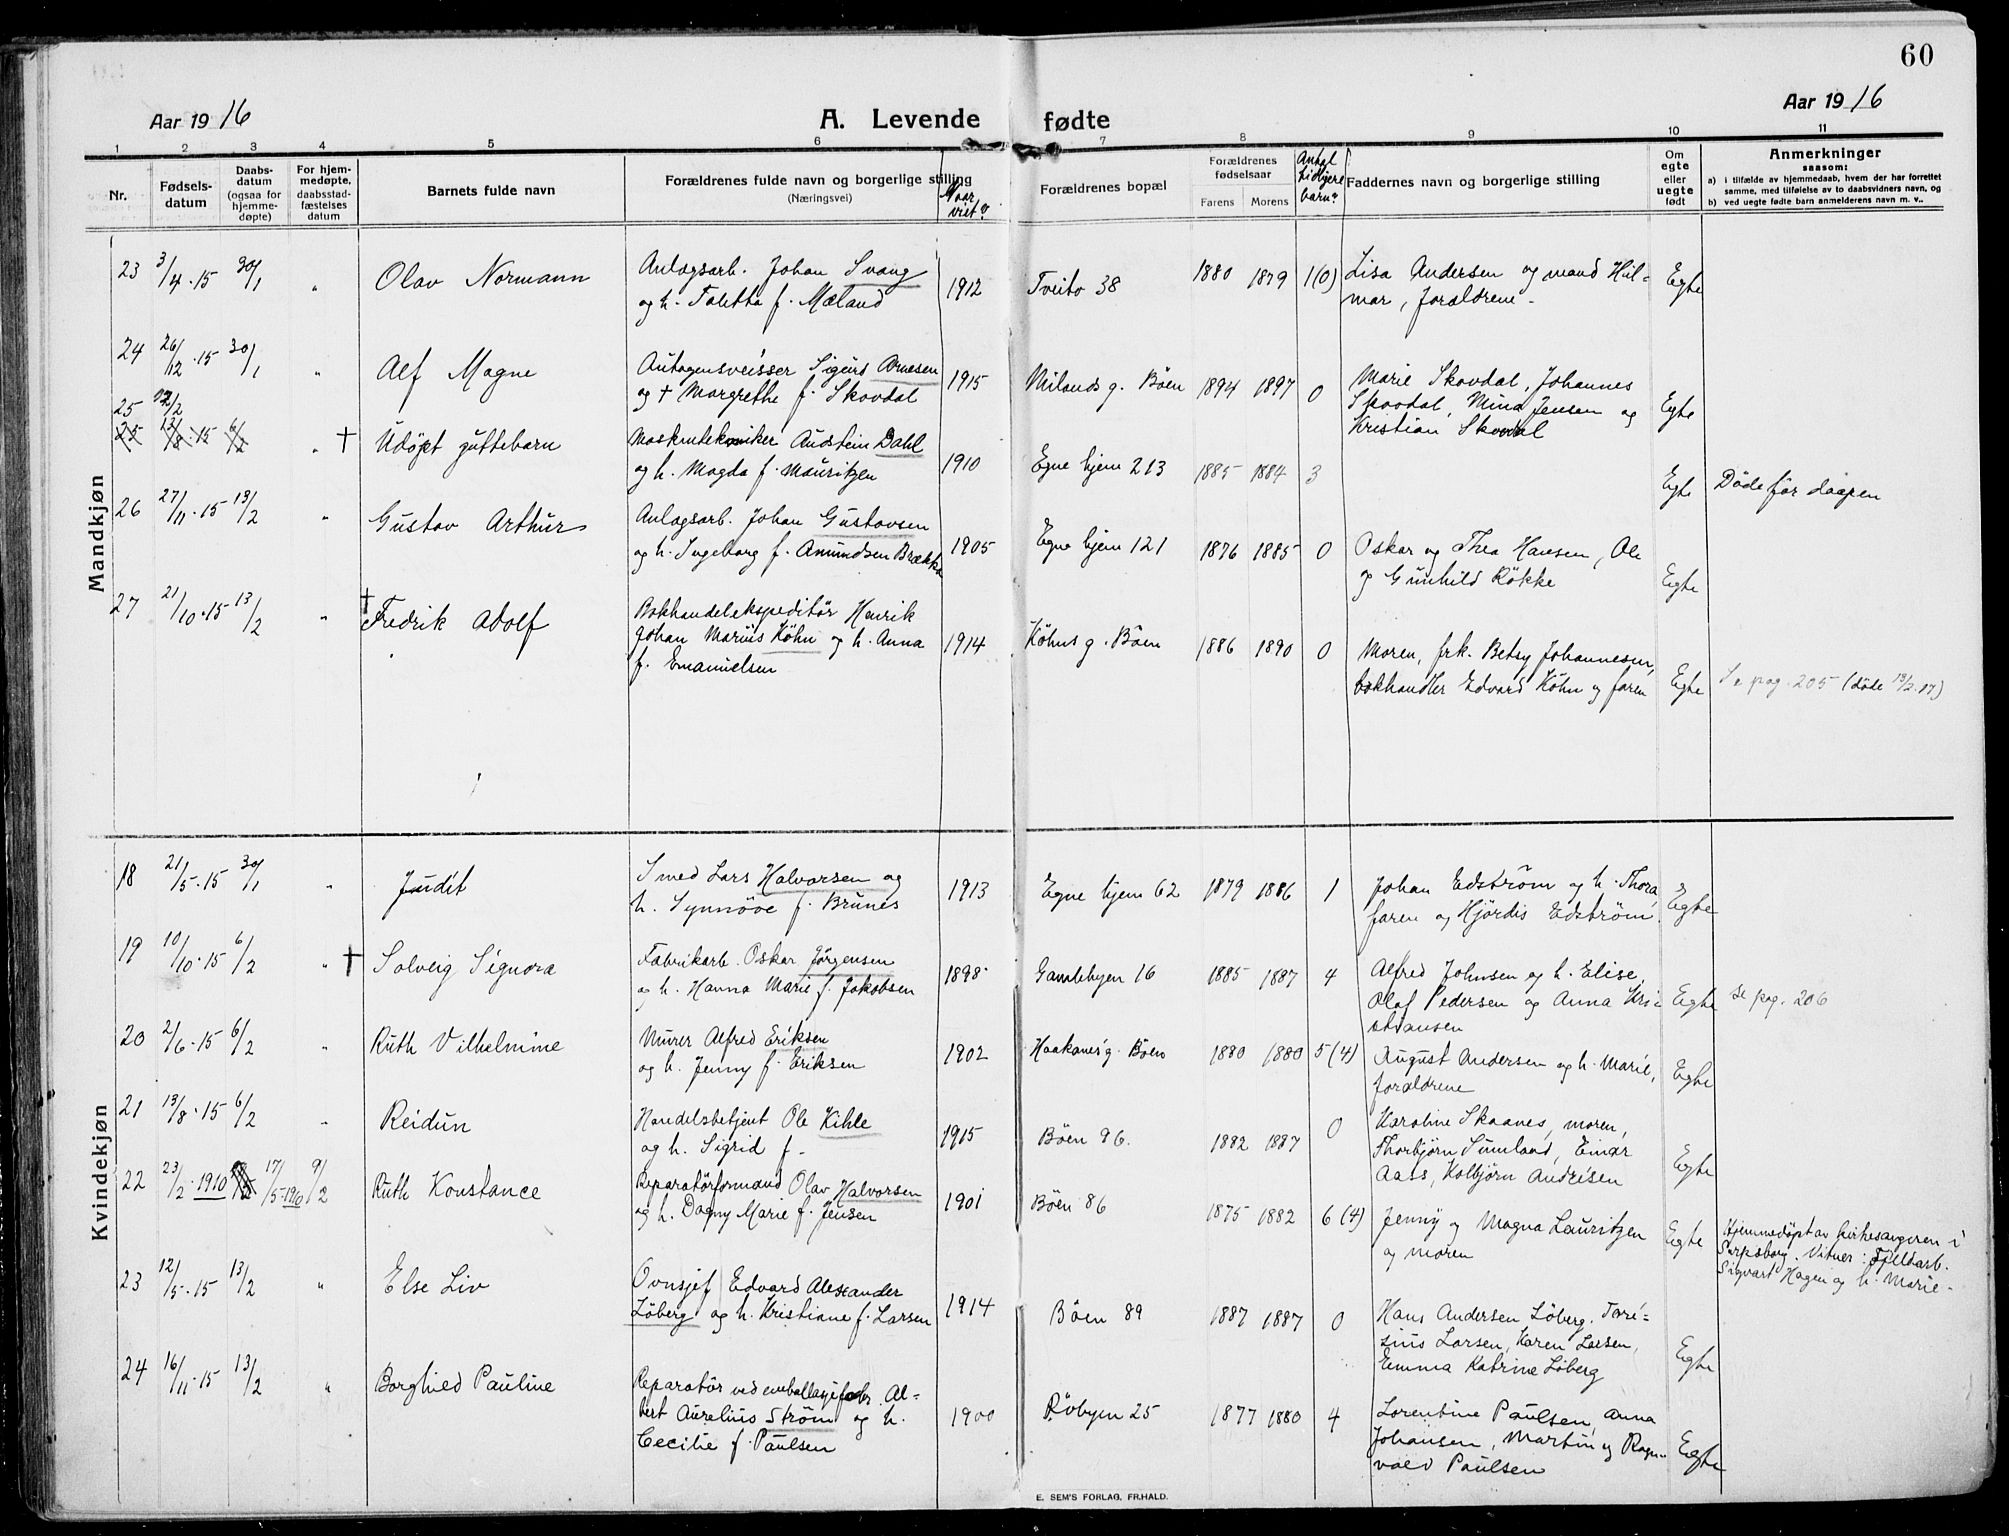 60
Aar 1916
A. Levende fødte
Aar 1916
1 2 3 4 5 6 7 8 9 10 11
Nr.
Fødsels-
datum
Daabs-
datum
(ogsaa for
hjemme-
døpte)
For hjem-
medøpte,
daabsstad-
fæstelses
datum
Barnets fulde navn
Forældrenes fulde navn og borgerlige stilling
(Næringsvei)
Naar
viet?
Forældrenes bopæl
Forældrenes
fødselsaar
Farens Morens
Antal
tidligere
barn?
Faddernes navn og borgerlige stilling
Om
egte
eller
uegte
født
Anmerkninger
saasom:
a) i tilfælde av hjemmedaab, hvem der har forrettet
samme, med tilføielse av to daabsvidners navn, og
b) ved uegte fødte barn anmelderens navn m. v..
Mandkjøn
23 3/4.15 30/1 " Olav Normann
Anlægsarb. Johan Svang
og h. Taletta f. Mæland
1912 Tveito 38 1880 1879 1(0)
Lisa Andersen og mand Hil-
mar, forældrene.
Egte
24 26/12.15 30/1 " Alf Magne
Autogensveisser Sigurd Arnesen
og + Margrethe f. Skovdal
1915 Milands g. Böen 1894 1897 0
Marie Skovdal, Johannes
Skovdal, Mina Jensen og
Kristian Skovdal
Egte
25
25 13/8.15 6/2 " † Udöpt guttebarn
Maskintekniker Audstein Dahl
og h. Magda f. Mauritzen
1910 Egne hjem 213 1885 1884 3
Egte Döde för daapen
26 27/11.15 13/2 " Gustav Arthur
Anlægsarb. Johan Gustavsen
og h. Ingeborg f. Amundsen Brækka
1905 Egne hjem 121 1876 1885 0
Oskar og Thea Hansen, Ole
og Gunhild Rökke
Egte
27 21/10.15 13/2 " † Fredrik Adolf
Bokhandelekspeditör Henrik
Johan Marius Köhn og h. Anna
f. Emanuelsen
1914 Köhns g. Böen 1886 1890 0
Moren, frk. Betsy Johannesen,
bokhandler Edvard Köhn og faren
Egte Se pag. 205 (döde 13/2.17)
Kvindekjøn
18 21/5.15 30/1 " Judit
Smed Lars Halvorsen og
h. Synnöve f. Brunes
1913 Egne hjem 62 1879 1886 1
Johan Edström og h. Thora,
faren og Hjördis Edström.
Egte
19 10/10.15 6/2 " † Solveig Signora
Fabrikarb. Oskar Jørgensen
og h. Hanna Marie f. Jakobsen
1898 Gamlebyen 16 1885 1887 4
Alfred Johnsen og h. Elise,
Olaf Pedersen og Anna Kri-
stiansen
Egte se pag. 206
20 2/6.15 6/2 " Ruth Vilhelmine
Murer Alfred Eriksen
og h. Jenny f. Eriksen
1902 Haakanes g. Böen 1880 1880 5(4)
August Andersen og h. Marie,
forældrene
Egte
21 13/8.15 6/2 " Reidun
Handelsbetjent Ole Kihle
og h. Sigrid f.
1915 Böen 96. 1882 1887 0
Karoline Skaanes, moren,
Thorbjörn Sumland, Einar
Aass, Kolbjörn Andrésen
Egte
22 23/2.1910 17/5.1910 9/2 Ruth Konstance
Reparatörformand Olav Halvorsen
og h. Dagny Marie f. Jensen
1901 Böen 86 1875 1882 6(4)
Jenny og Magna Lauritzen
og moren
Egte
Hjemmedöpt av kirkesangeren i
Sarpsborg. Vitner: Fjeldarb.
Sigvart Hagen og h. Marie.
23 12/5.15 13/2 " Else Liv
Ovnsjef Edvard Alexander
Löberg og h. Kristiane f. Larsen
1914 Böen 89 1887 1887 0
Hans Andersen Löberg,
Larsen, Karen Larsen,
Emma Katrine Löberg
Egte
24 16/11.15 13/2 " Borghild Pauline
Reparatör ved emballagefabr. Al-
bert Aurelius Ström og h.
Cecilie f. Paulsen
1900 Röbyen 25 1877 1880 4
Lorentine Paulsen, Anna
Johansen, Martin og Ragn-
vald Paulsen
Egte
E. SEM'S FORLAG, FR.HALD.